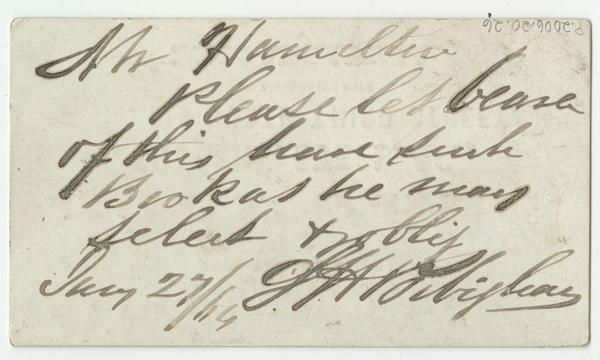 P.2006.20.26
Mr Hamilton
Please let bearer
of this have such
Book as he may
select & oblig
Jany 27/14